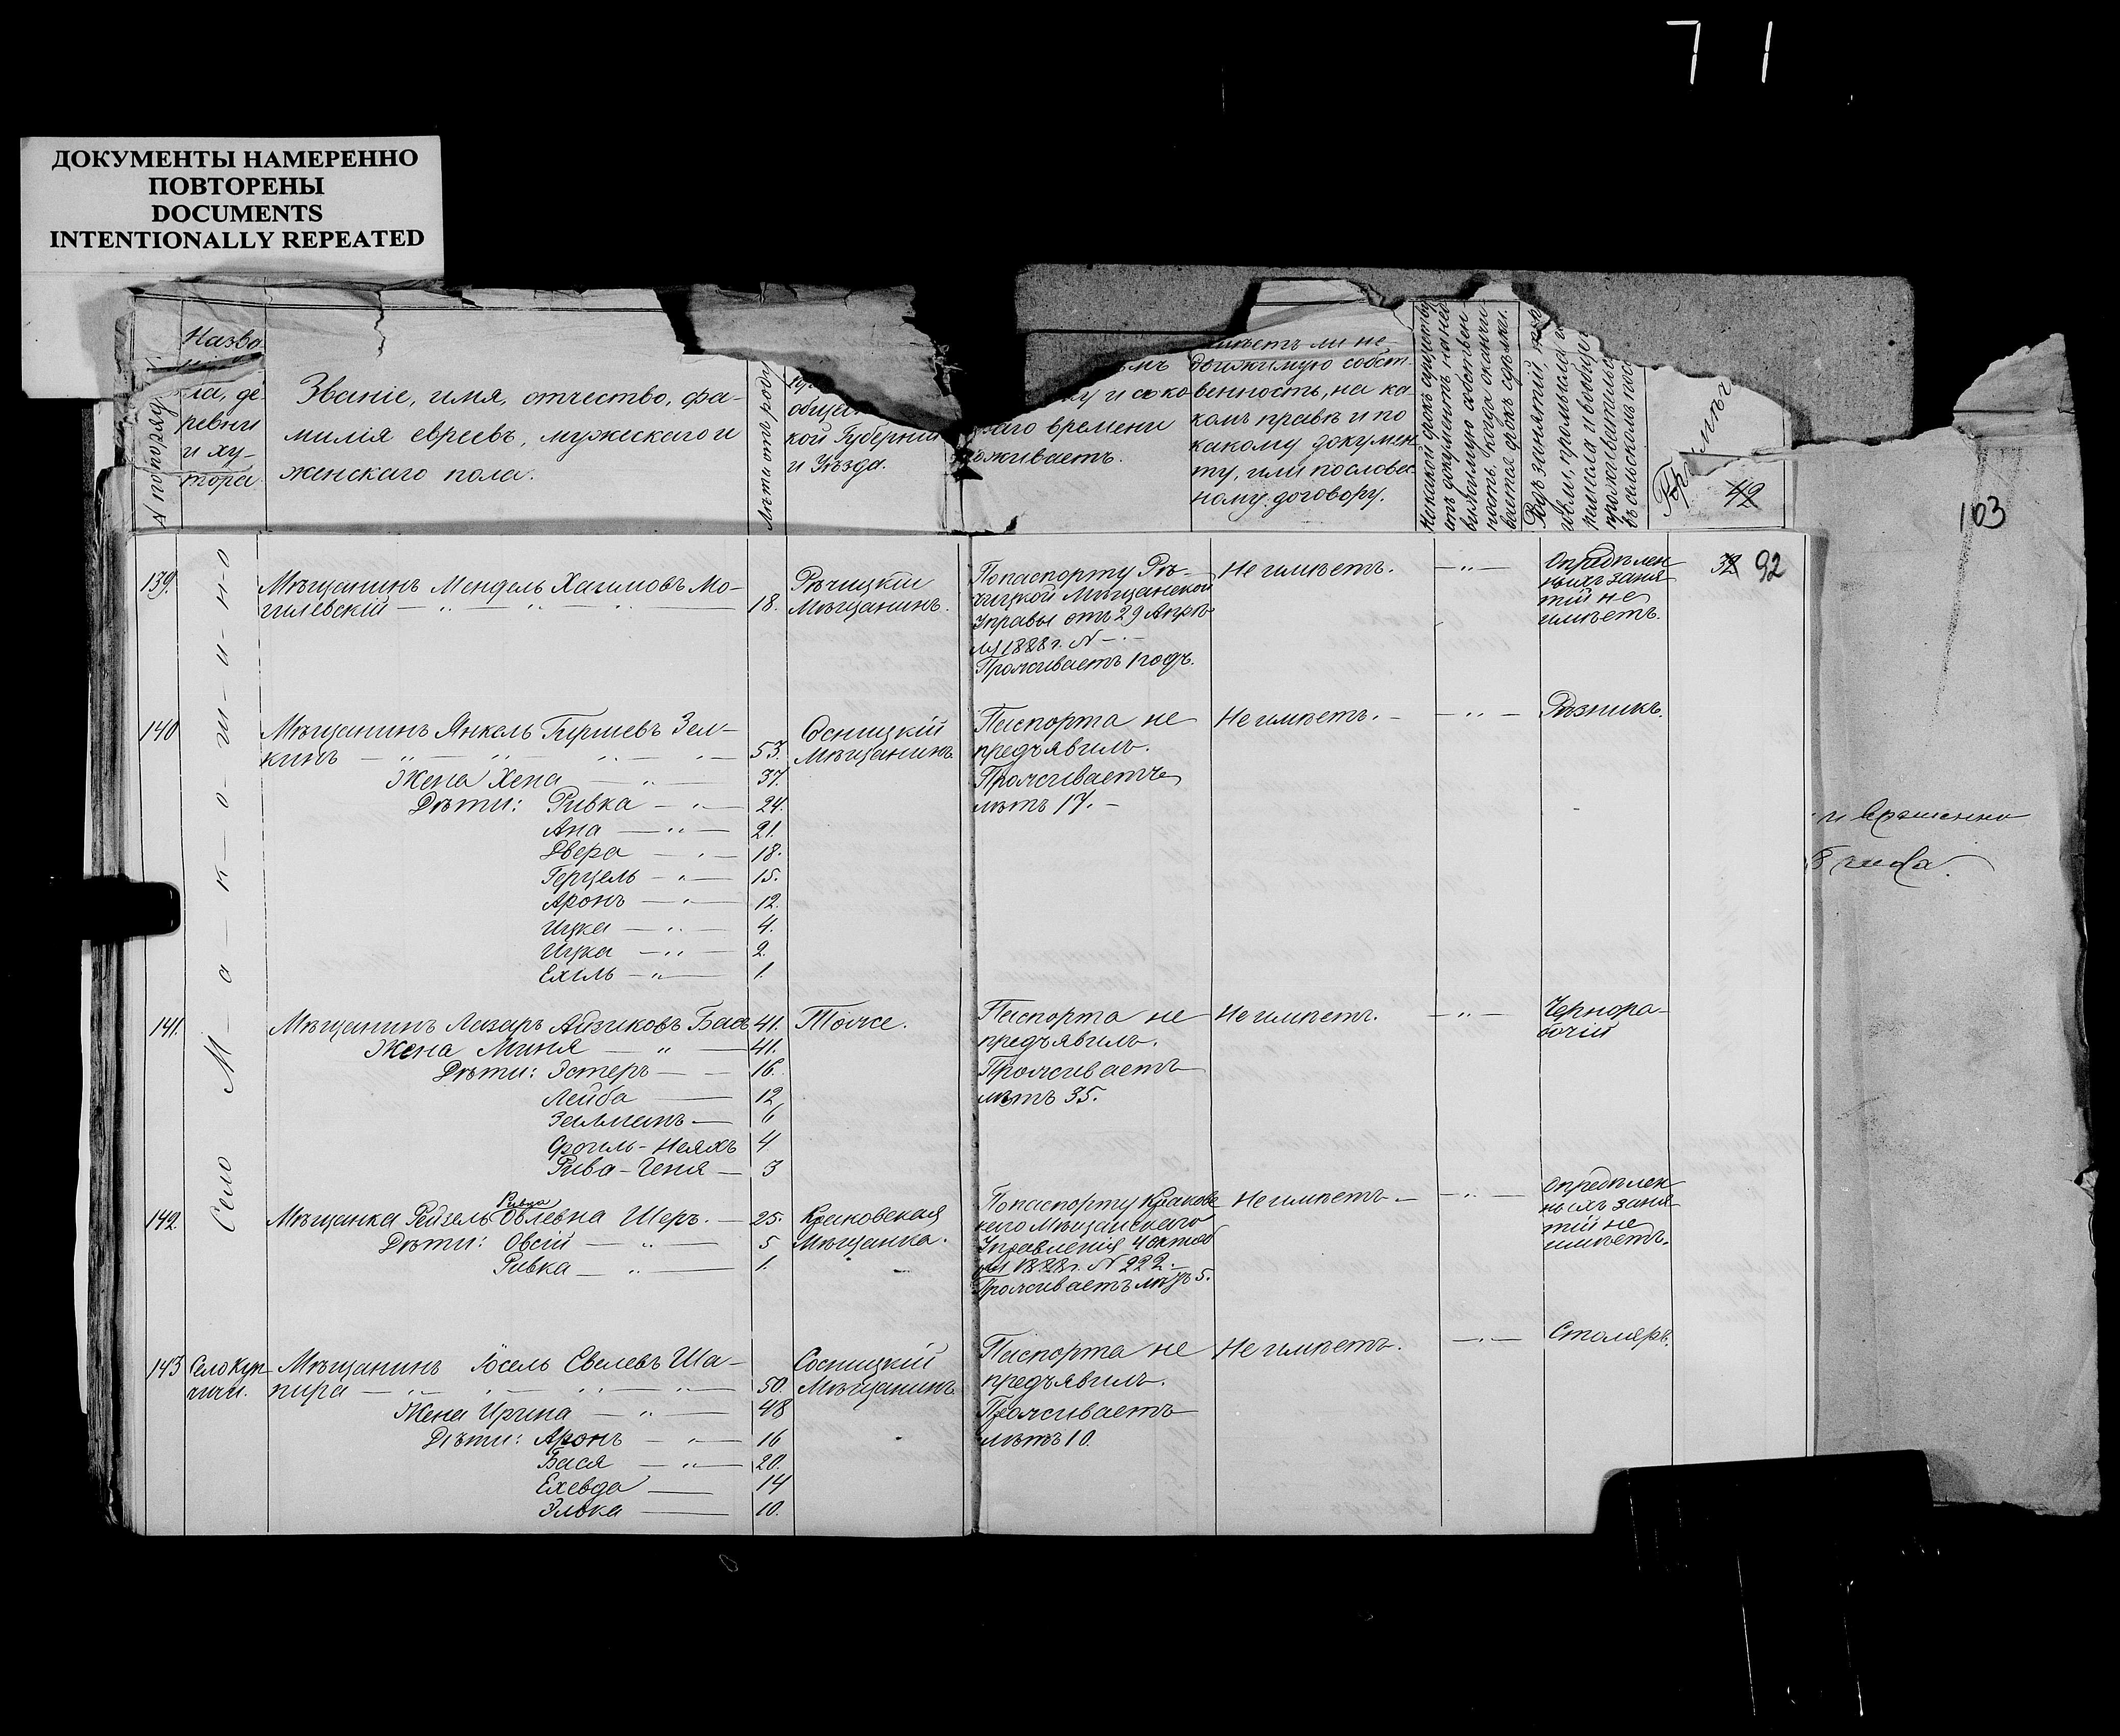 71
ДОКУМЕНТЫ НАМЕРЕННО
ПОВТОРЕНЫ
DOCUMENTS
INTENTIONALLY REPEATED
N по поряд
Назва
ла, де
ревни
и ху-
тора.
Званіе, имя, отчество, фа-
милія евреевъ, мужескаго и
женскаго пола.
Лѣта отъ роду
общест
кой Губерніи
и Уѣзда.
аго времени
оживаетъ.
имѣетъ ли не-
движимую собст-
венность, на ка-
комъ правѣ и по
какому докумен
ту, или по словес
ному договору.
42
103
Село М-а-к-о-ш-и-н-о
139.
Мѣщанинъ Мендель Хаимовъ Мо-
гилевскій 18.
Рѣчицкій
Мѣщанинъ.
По паспорту Рѣ-
чицкой Мѣщанской
Управы отъ 29 Апрѣ-
ля 1888 г. N —
Проживаетъ 1 годъ.
Не имѣетъ. — " —
Опредѣлен
ныхъ заня
тій не
имѣетъ.
32 92
140
Мѣщанинъ Янкель Гиршевъ Зел-
кинъ 53.
Жена Хена 37.
Дѣти: Ривка 24.
Ана 21.
Двера 18.
Герцель 15.
Аронъ 12.
Ицка 4.
Ицка 2.
Ехиль 1.
Сосницкій
Мѣщанинъ.
Паспорта не
предъявилъ.
Проживаетъ
лѣтъ 17. –
Не имѣетъ. – — " —
Рѣзникъ.
141.
Мѣщанинъ Лазарь Айзиковъ Басъ 41.
Жена Миня 41.
Дѣти: Эстеръ 16.
Лейба 12
Зельманъ 6
Фроиль-Неяхъ 4
Рива-Геня 3
Тоже.
Паспорта не
предъявилъ.
Проживаетъ
лѣтъ 35.
Не имѣетъ. — " —
Чернора-
бочій
142.
Мѣщанка Рейзель Овлевна Шеръ. 25.
Дѣти: Овсій 5
Ривка 1.
Мѣщанка.
Не имѣетъ — — " —
Управленія 4 октяб
ря 1888 г. N 222. –
Проживаетъ лѣтъ 5.
Опредѣлен
ныхъ заня
тій не
имѣетъ.
143
Село Кун
ичи.
Мѣщанинъ Іосель Свелевъ Ша-
пира 50.
Жена Ирина 48
Дѣти: Аронъ 16
Бася 20.
Ехевда 14
Элька 10.
Сосницкій
Мѣщанинъ
Паспорта не
предъявилъ.
Проживаетъ
лѣтъ 10.
Не имѣетъ. — " —
Столяръ.